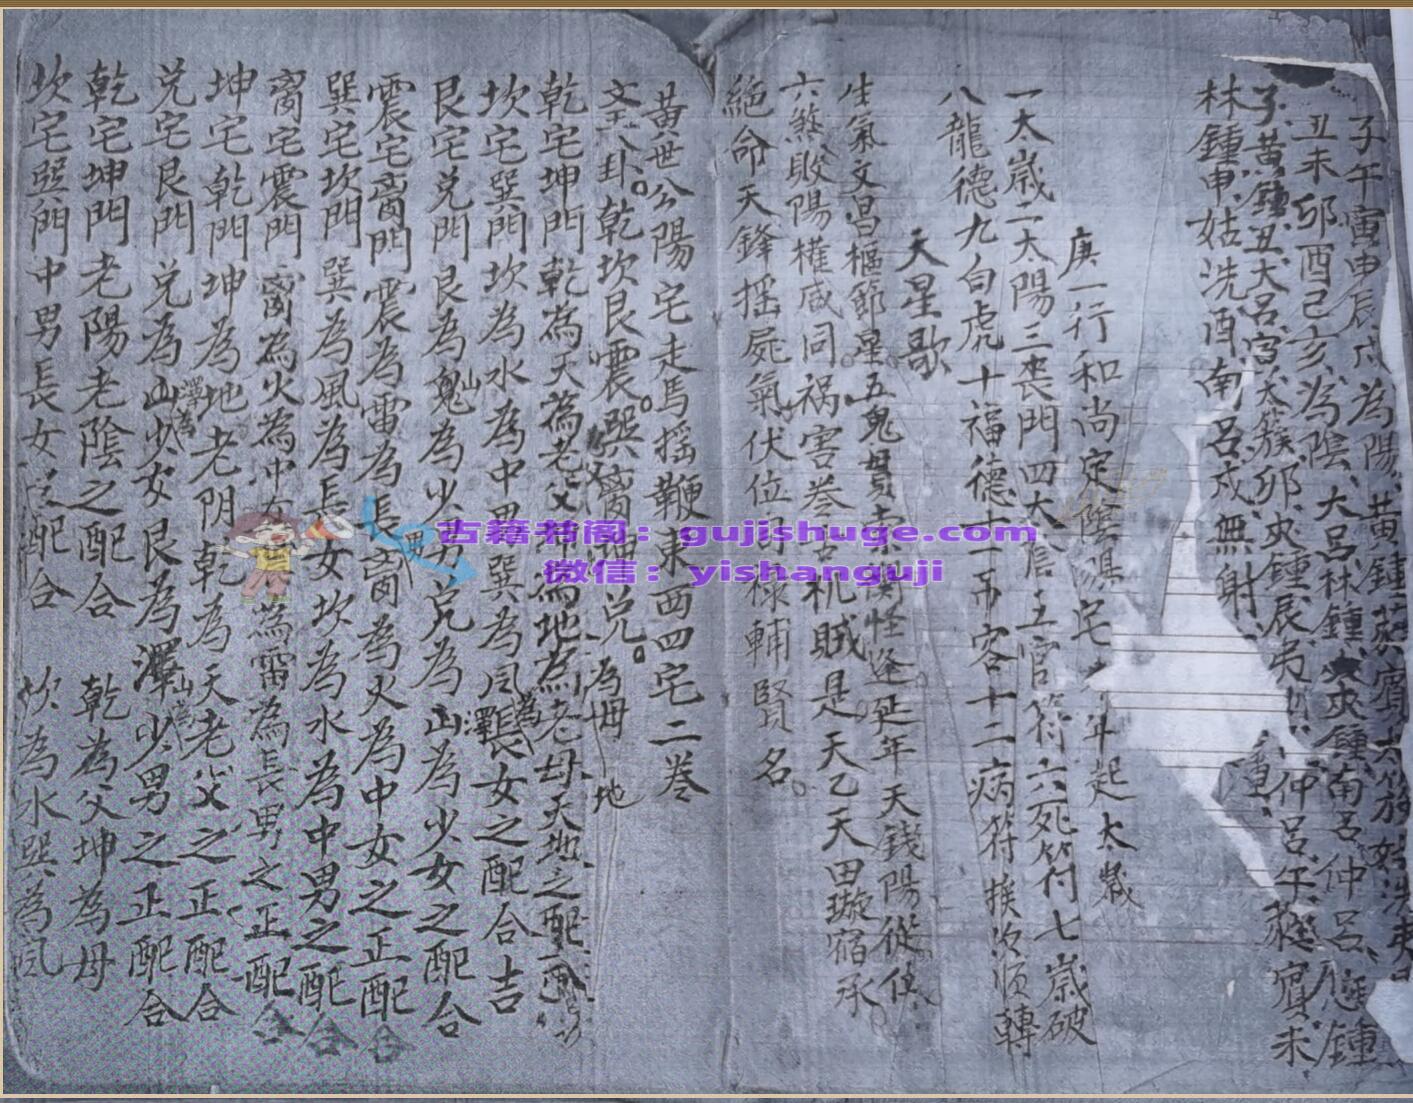 子午寅申辰戌為陽黃鍾蕤賓太簇姑洗夷
丑未卯酉己亥為陰大呂林鍾夾鍾南呂仲呂應鍾
子黃鍾丑大呂寅太簇卯夾鍾辰姑 仲呂午蕤賓未
林鍾申姑洗酉南呂戌無射
庚一行和尚定陰陽宅 年起太歲
一太歲二太陽三喪門四太陰五官符六死符七歲破
八龍德九白虎十福德十一吊客十二病符挨次順轉
天星歌
生氣文昌樞節星五鬼 怪逢延年天錢陽從
六煞敗陽權威同祸害 机賊是天乙天田璇宿承
絕命天鋒摇屍氣伏位 祿輔賢名
黃世公陽宅走馬摇鞭東西四宅二卷
文王八卦乾坎艮震巽离坤兑
為父
為母
地
乾宅坤門乾為天為老父坤為地為老母天地之配
坎宅巽門坎為水為中男巽為风為長女之配合吉
艮宅兑門艮為山為少男兑為澤山為少女之配合
震宅离門震為雷為長男离為火為中女之正配合
巽宅坎門巽為風為長女坎為水為中男之配合
离宅震門离為火為中女 為雷為長男之正配合
坤宅乾門坤為地老阴乾為天老父之正配合
兑宅艮門兑為澤為少女艮為山為少男之正配合
乾宅坤門老陽老陰之配合 乾為父坤為母
坎宅巽門中男長女 配合 坎為水巽為风
古籍书阁：gujishuge.com
微信：yishanguji